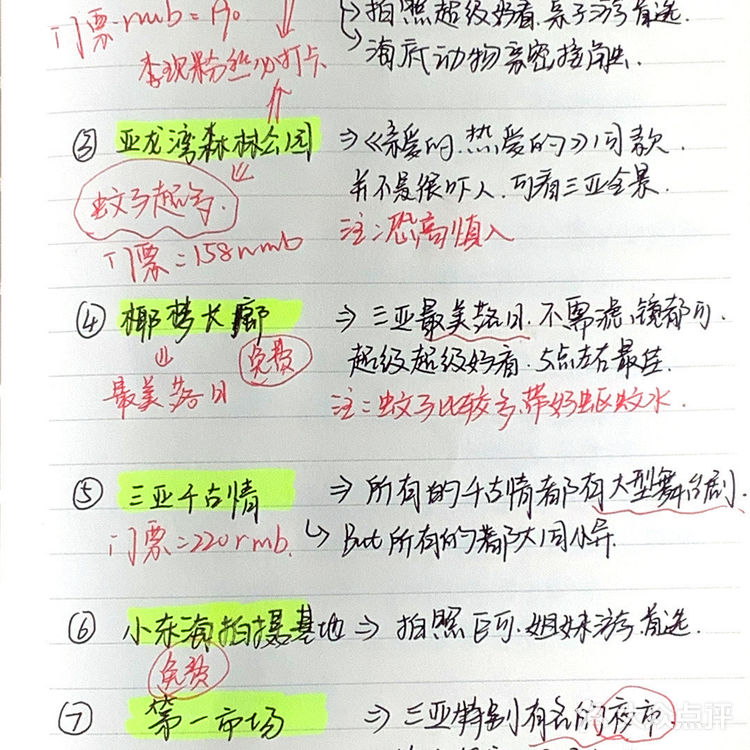 门票rmb=190
拍照超级好看.亲子游首选.
李现粉丝必打卡
海底动物亲密接触.
③ 亚龙湾森林公园 ⇒《亲爱的.热爱的》同款.
蚊子超多.
并不是很吓人.可看三亚全景.
门票=158rmb
注:恐高慎入
④ 椰梦长廊 ⇒ 三亚最美落日.不需滤镜都可.
免费
超级超级好看.5点左右最佳.
最美落日
注:蚊子比较多,带好驱蚊水.
⑤ 三亚千古情 ⇒ 所有的千古情都有大型舞台剧.
门票=220rmb.
But所有的都大同小异.
⑥ 小东海拍摄基地 ⇒ 拍照即可.姐妹游首选.
免费
⑦ 第一市场 ⇒ 三亚特别有名的夜市
大众点评